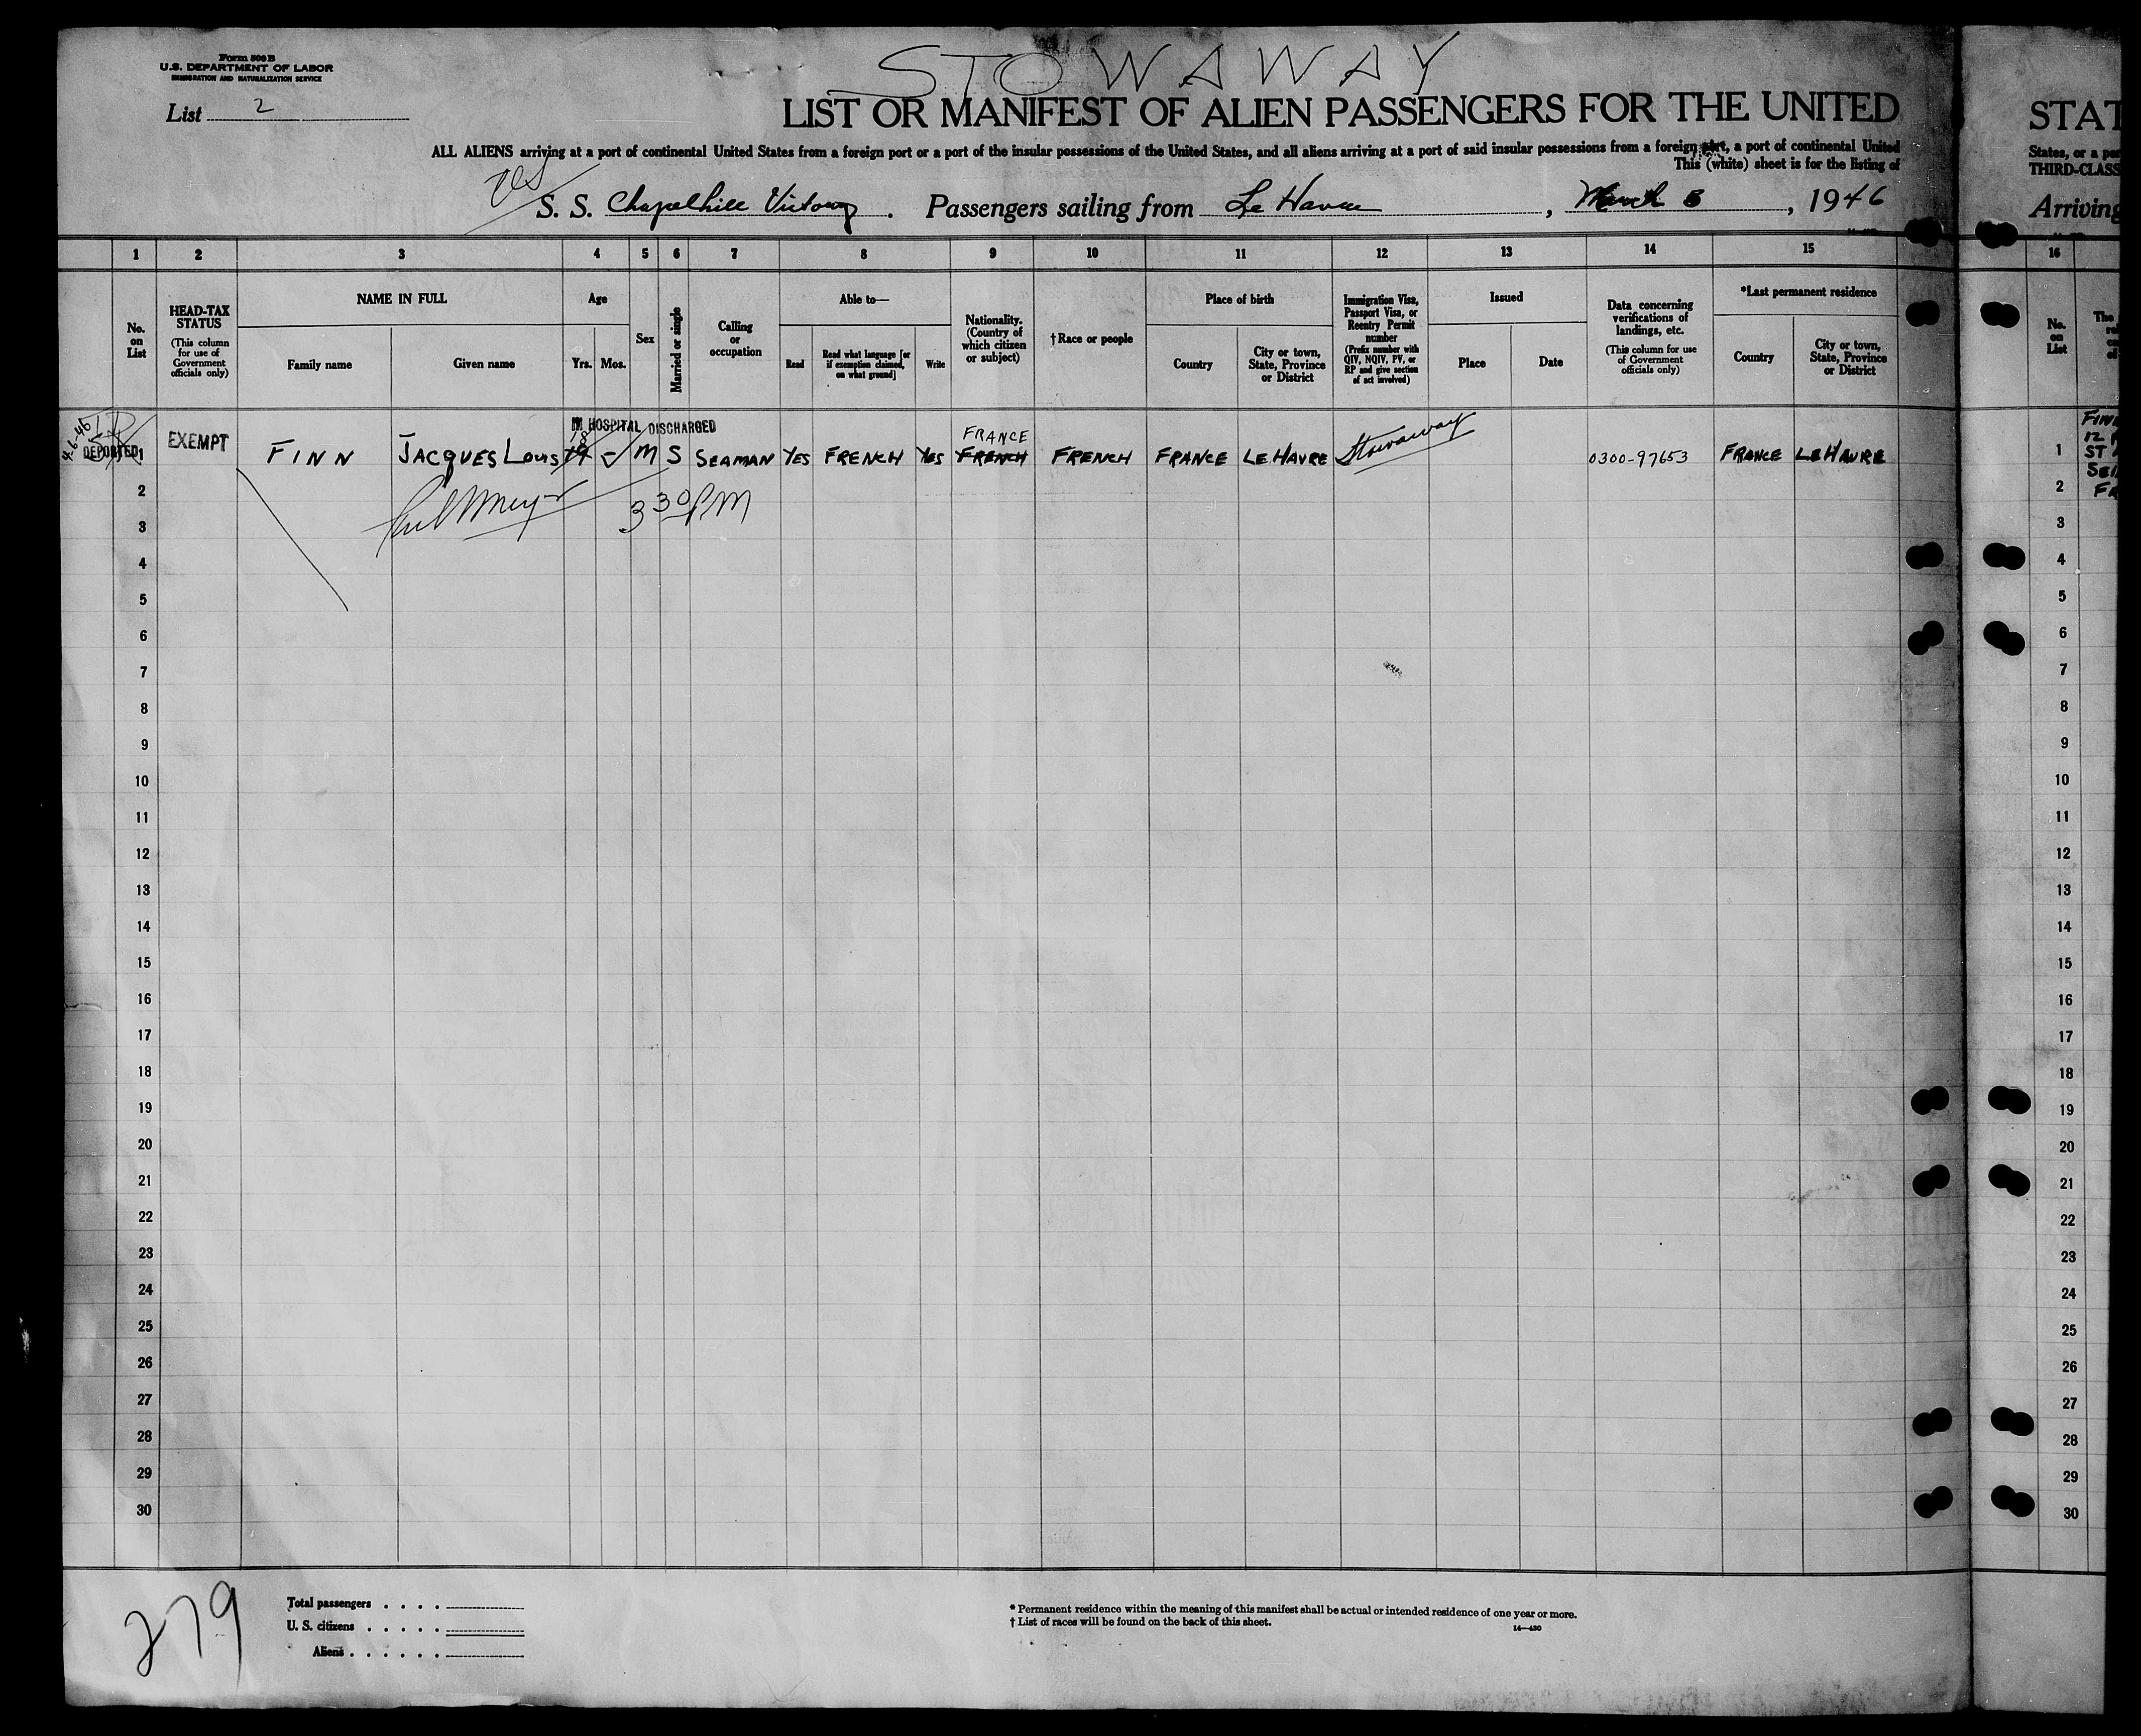 STOWAWAY
Form 500 B
U.S. DEPARTMENT OF LABOR
IMMIGRATION AND NATURALIZATION SERVICE
List 2
LIST OR MANIFEST OF ALIEN PASSENGERS FOR THE UNITED
ALL ALIENS arriving at a port of continental United States from a foreign port or a port of the insular possessions of the United States, and all aliens arriving at a port of said insular possessions from a foreign port, a port of continental United
This (white) sheet is for the listing of
S. S. Chapelhill Victory. Passengers sailing from Le Havre, March 3, 1946
1 2 3 4 5 6 7 8 9 10 11 12 13 14 15
No. on List
HEAD-TAX STATUS
(This column for use of Government officials only)
NAME IN FULL
Family name
Given name
Age
Yrs. Mos.
Sex
Married or single
Calling or occupation
Able to—
Read
Read what language [or if exemption claimed, on what ground]
Write
Nationality. (Country of which citizen or subject)
†Race or people
Place of birth
Country
City or town, State, Province or District
Immigration Visa, Passport Visa, or Reentry Permit number
(Prefix number with QIV, NQIV, PV, or RP and give section of act involved)
Issued
Place
Date
Data concerning verifications of landings, etc.
(This column for use of Government officials only)
*Last permanent residence
Country
City or town, State, Province or District
4-6-46
DEPORTED
IN HOSPITAL DISCHARGED
18 FRANCE
1 EXEMPT FINN JACQUES LOUIS 19 M S SEAMAN YES FRENCH YES FRENCH FRENCH FRANCE LE HAVRE Stowaway 0300-97653 FRANCE LE HAVRE
2
3 3 30 PM
4
5
6
7
8
9
10
11
12
13
14
15
16
17
18
19
20
21
22
23
24
25
26
27
28
29
30
279
Total passengers . . . .
U. S. citizens . . . . .
Aliens . . . . . .
* Permanent residence within the meaning of this manifest shall be actual or intended residence of one year or more.
† List of races will be found on the back of this sheet.
14—430
STAT
States, or a po
THIRD-CLASS
Arriving
16
No. on List
The
FINN
12
1 ST
SEI
2
3
4
5
6
7
8
9
10
11
12
13
14
15
16
17
18
19
20
21
22
23
24
25
26
27
28
29
30